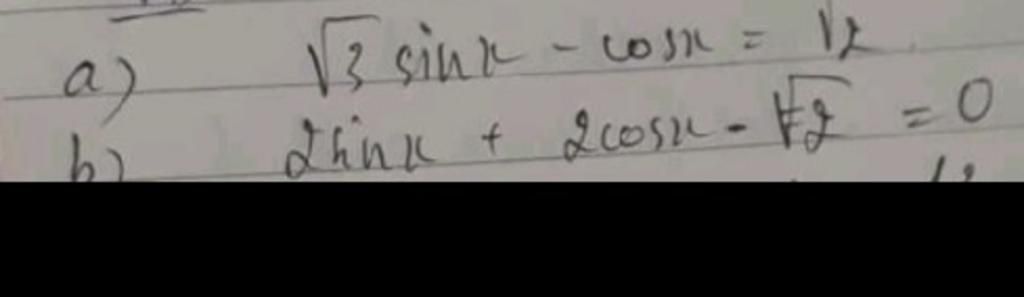 a) √3 sinx - cosx = √2
b) 2sinx + 2cosx - √2 = 0